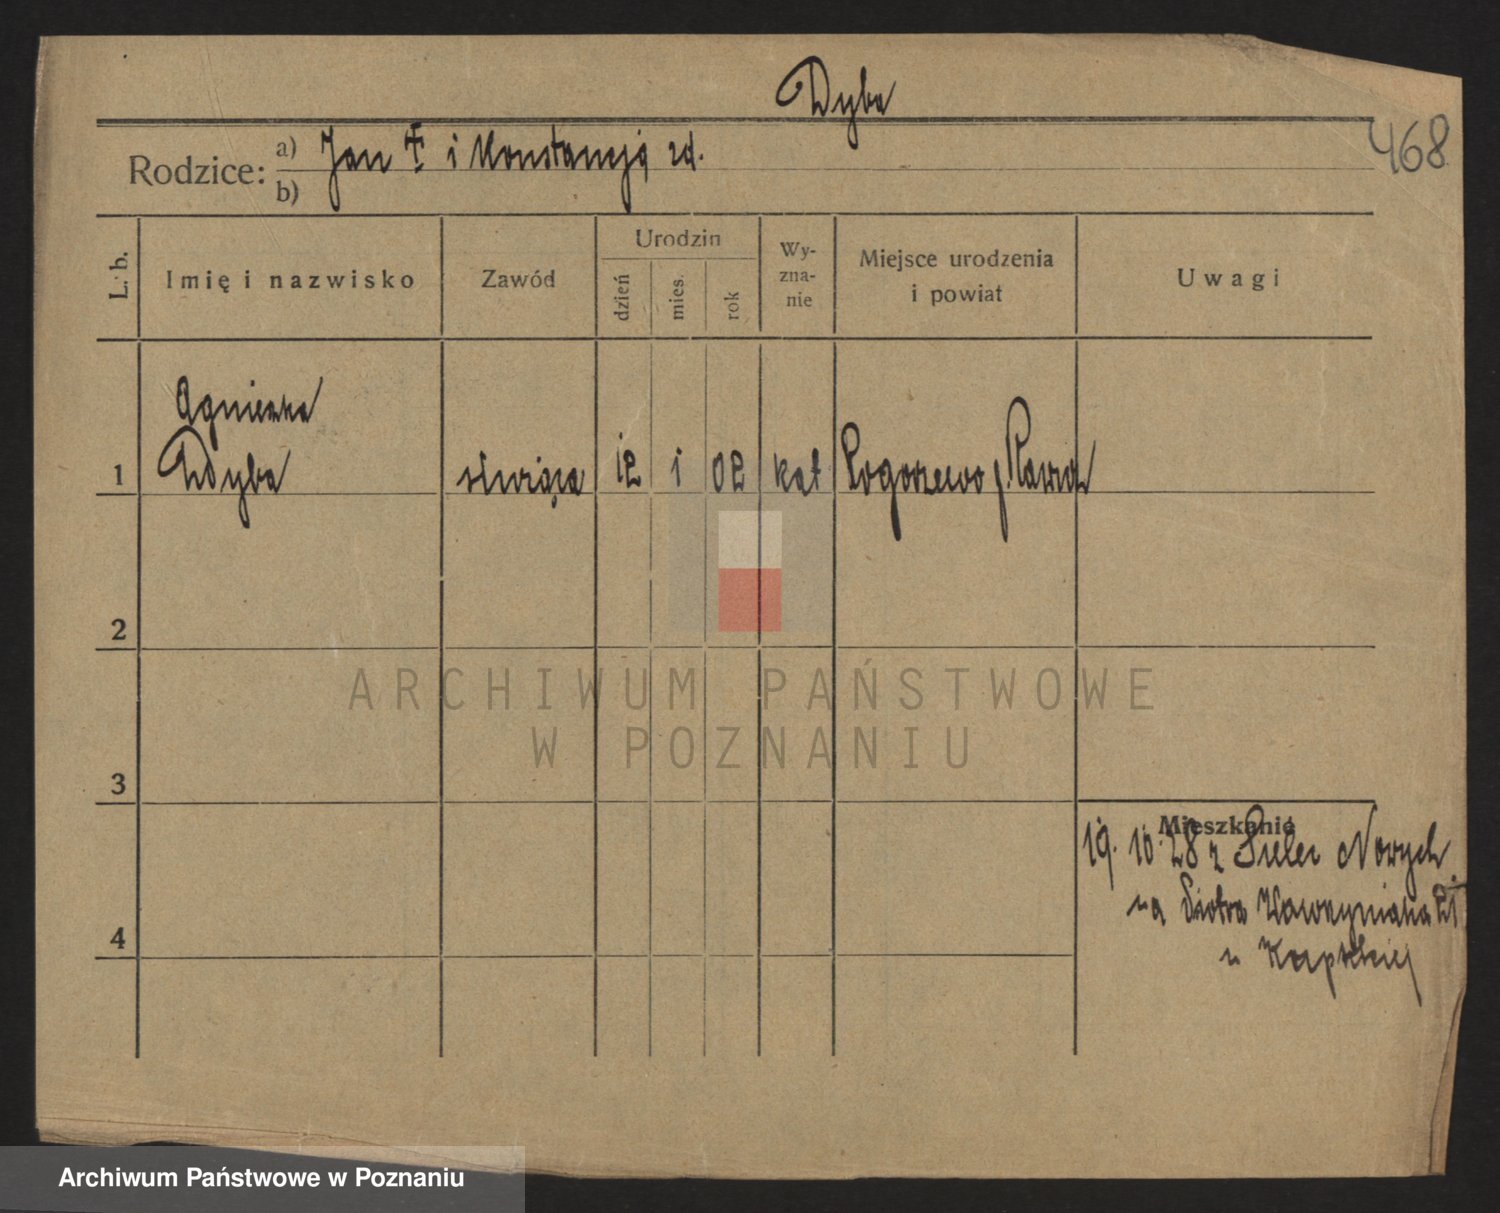 Dyba
468
Rodzice: a) Jan † i Konstancja zd.
b)
L. b.
Imię i nazwisko
Zawód
Urodzin
dzień
mies.
rok
Wy-
zna-
nie
Miejsce urodzenia
i powiat
Uwagi
Agnieszka
1 Dyba służąca 12 1 02 kat Pogorzewo p. Rawicz
2
3
4
Mieszkanie
19. 10. 28 z Sielec Nowych
na Piotra Wawrzyniaka 21
u
ARCHIWUM PAŃSTWOWE
W POZNANIU
Archiwum Państwowe w Poznaniu